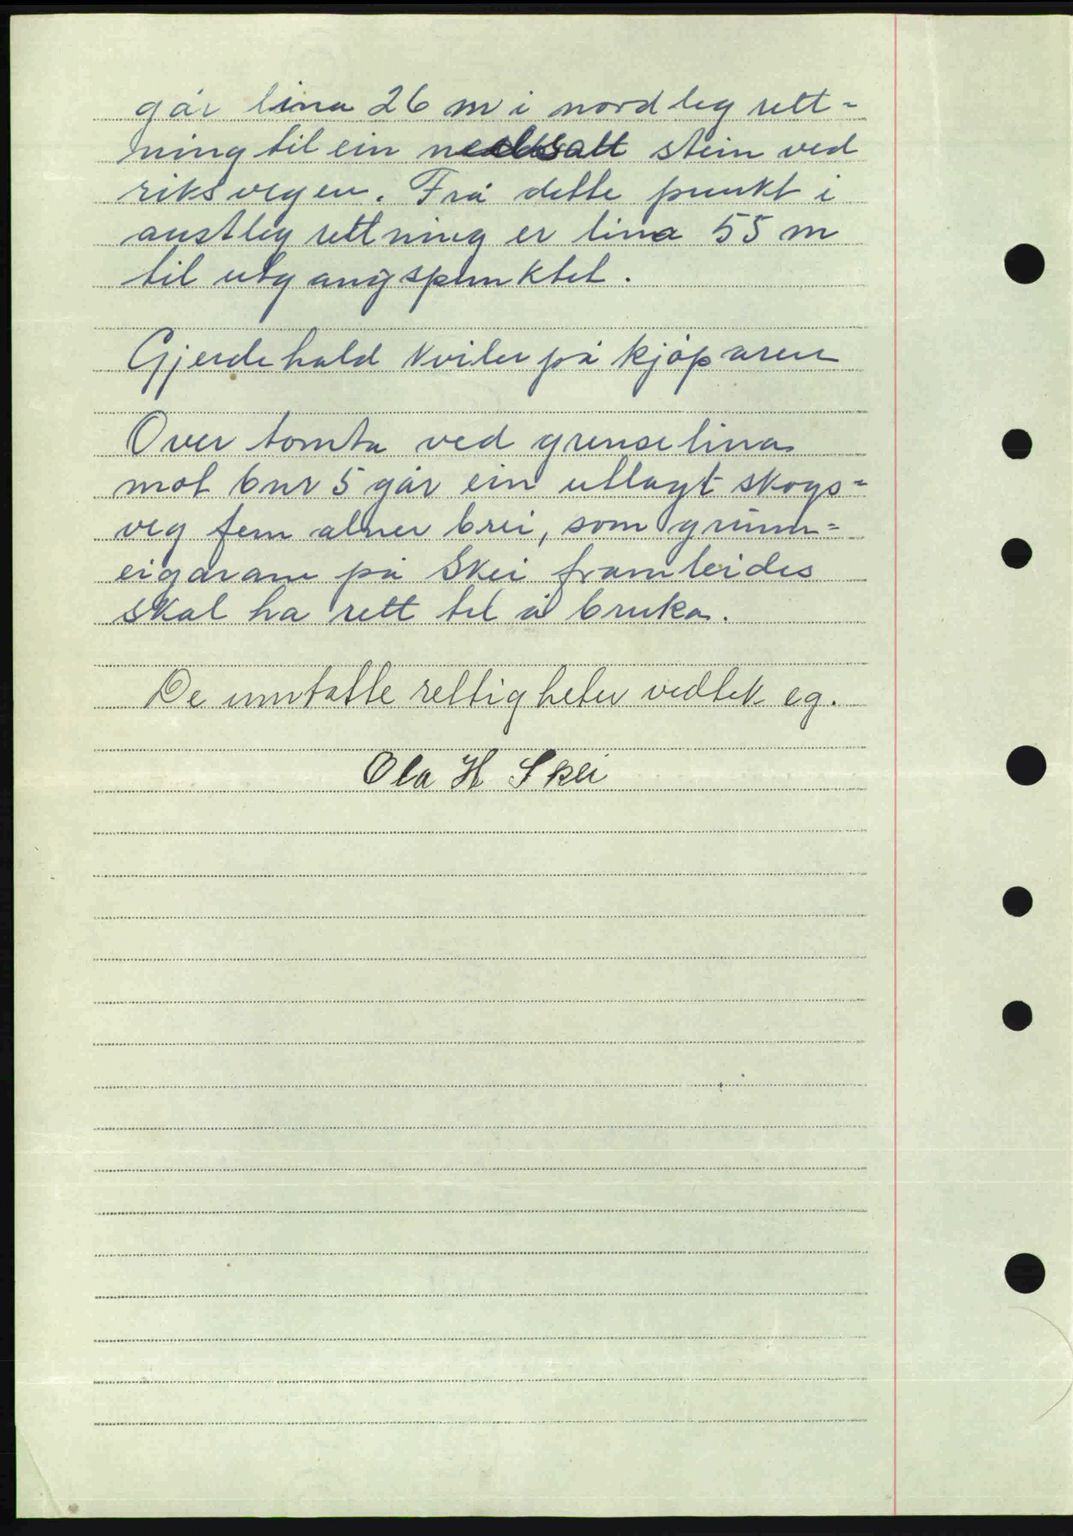 går lina 26 m i nordleg rett-
ning til ein nedsatt stein ved
riksvegen. Frå dette punkt i
austleg rettning er lina 55 m
til utgangspunktet.
Gjerdehald kviler på kjøparen
Over tomta ved grenselina
mot bnr 5 går ein utlagt skogs=
veg fem alner brei, som grunn=
eigarane på Skei framleides
skal ha rett til å bruka.
De umtatte rettigheter vedtek eg.
Ola H Skei